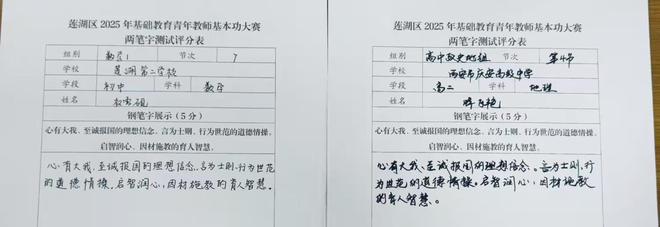 莲湖区 2025 年基础教育青年教师基本功大赛
两笔字测试评分表
组别 数学1 节次 7
学校 莲湖第二学校
学段 初中 学科 数学
姓名
钢笔字展示(5 分)
心有大我、至诚报国的理想信念。言为士则、行为世范的道德情操。
启智润心、因材施教的育人智慧。
心有大我、至诚报国的理想信念。言为士则、行为世范
的道德情操。启智润心、因材施教的育人智慧。
莲湖区 2025 年基础教育青年教师基本功大赛
两笔字测试评分表
组别 高中政史地组 节次 第4节
学校 西安市庆安高级中学
学段 高二 学科 地理
姓名
钢笔字展示(5 分)
心有大我、至诚报国的理想信念。言为士则、行为世范的道德情操。
启智润心、因材施教的育人智慧。
心有大我、至诚报国的理想信念。言为士则、行
为世范的道德情操。启智润心、因材施教
的育人智慧。